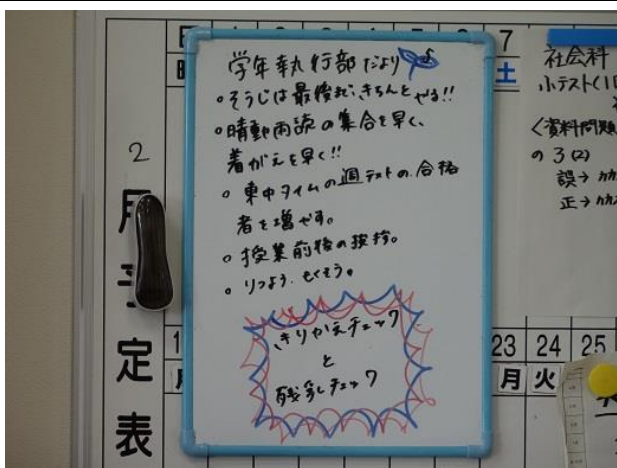 学年執行部だより
。そうじは最後まで、きちんとやる!!
。晴動雨読の集合を早く、
着がえを早く!!
。東中タイムの週テストの合格
者を増やす。
。授業前後の挨拶。
。りつよう、もくそう。
きりかえチェック
と
残食チェック
2
月予
定
表
7
土
社会科
小テスト(1
<資料問題
の3(2)
誤→
正→
23 24 25
月 火